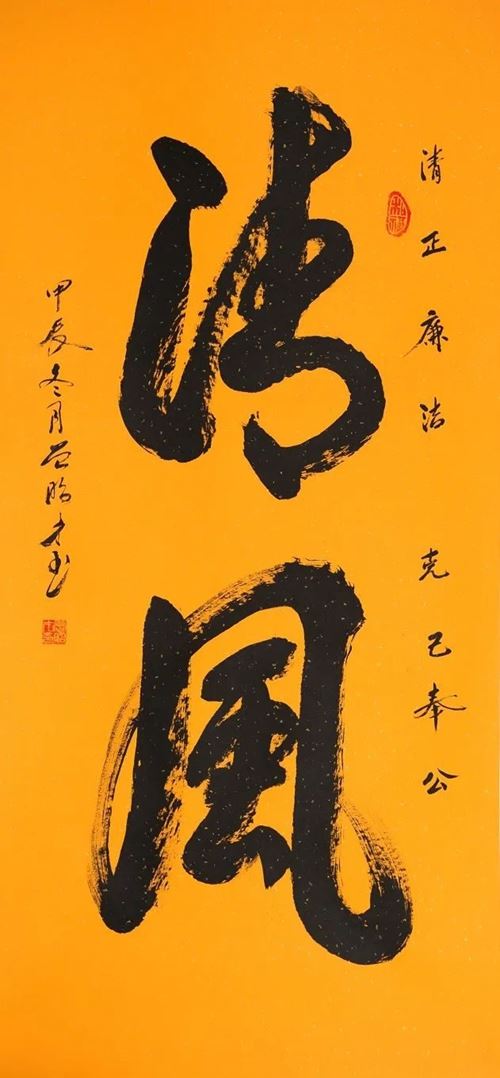 清正廉洁 克己奉公
清风
甲辰冬月